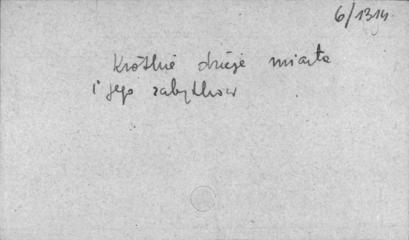 6/1314
Krótkie dzieje miasta
i jego zabytków